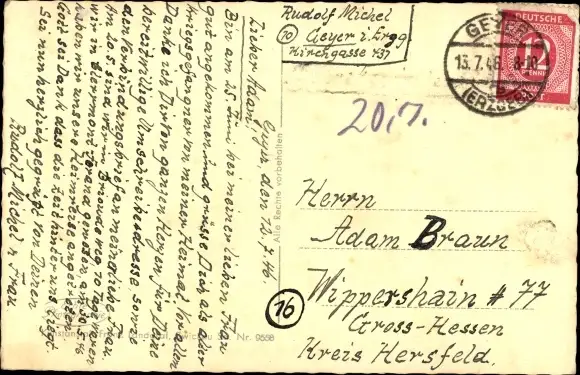 Rudolf Michel
(10) Geyer i. Erzg.
Kirchgasse 437
GEYER
13.7.46
(ERZGEB)
DEUTSCHE
12
PFENNIG
20.7.
Geyer, den 12.7.46.
Lieber Adam!
Bin am 25. Juni bei meiner lieben Frau
gut angekommen und grüsse Dich als
Kriegsgefangner von meiner Heimat. Vor allem
Danke ich Dir von ganzen Herzen für Deine
bereitwillige Umschreibeadresse sowie
den Verbindungsbrief an meine liebe Frau.
Am 20.5. sind wir in
wir in
haben wir unsere Heimreise angetreten
Gott sei Dank dass die Zeit hinter uns liegt.
Sei nun herzlich gegrüßt von Deinen
Rudolf Michel u Frau
Alle Rechte vorbehalten
Nr. 9658
Herrn
Adam Braun
16
Wippershain # 77
Gross-Hessen
Kreis Hersfeld.